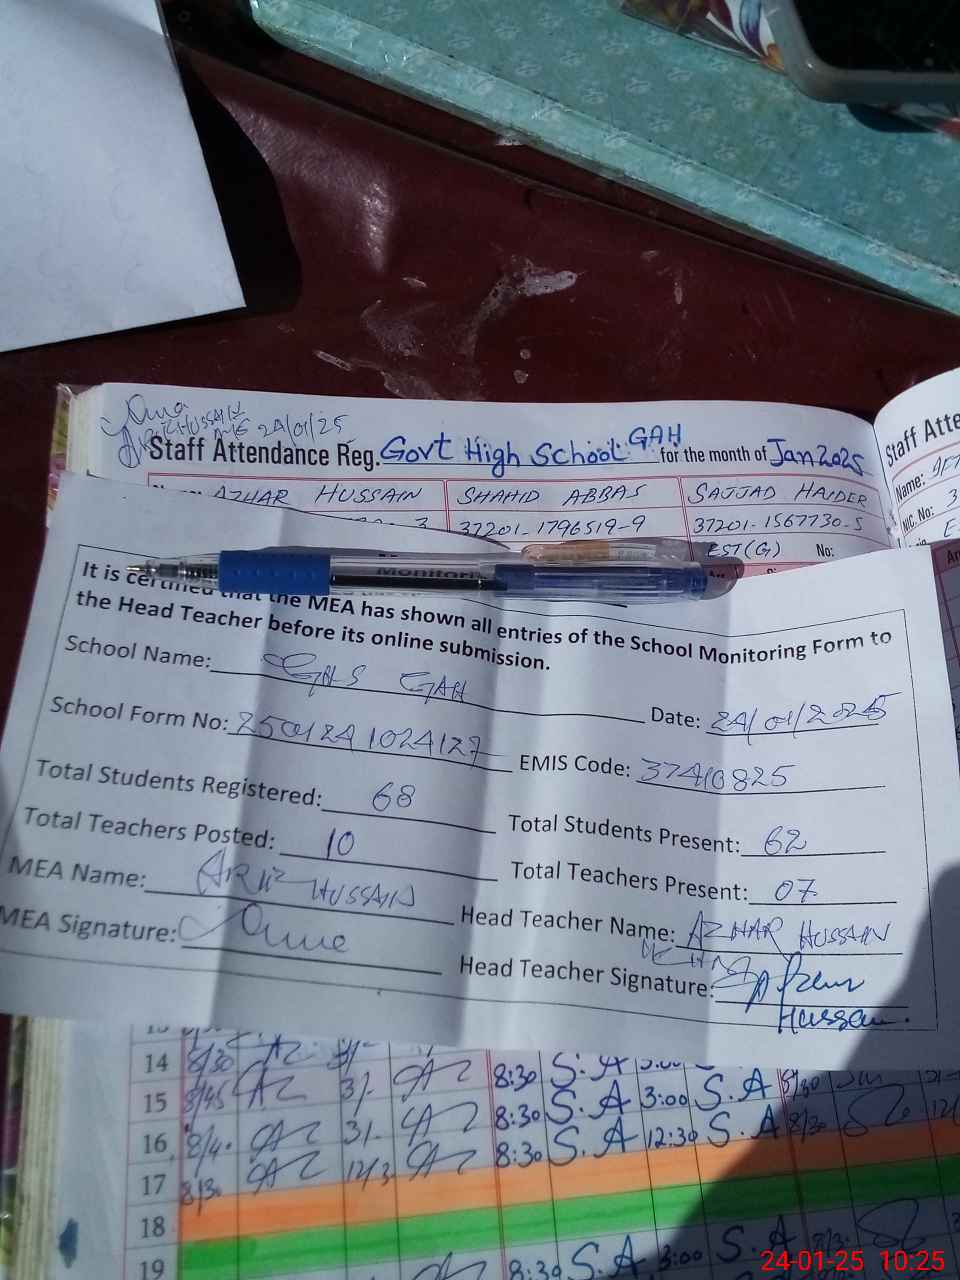 24/01/25
Staff Attendance Reg. Govt High School GAH for the month of Jan 2025
Staff Atte
AZHAR HUSSAIN SHAHID ABBAS SAJJAD HAIDER
Name:
3 37201-1796519-9 37201-1567730-5
NIC. No: 3
EST(G) No:
Monitori
It is certified that the MEA has shown all entries of the School Monitoring Form to
the Head Teacher before its online submission.
School Name: GHS GAH
Date: 24/01/2025
School Form No: 2501241024127
EMIS Code: 37410825
Total Students Registered: 68
Total Students Present: 62
Total Teachers Posted: 10
Total Teachers Present: 07
MEA Name: HUSSAIN
Head Teacher Name: AZHAR HUSSAIN
MEA Signature:
Head Teacher Signature:
Hussain.
14 8/30
15 8/45 3/- 8:30 S.A 3:00 S.A 8/30
16 8/4 3/- 8:30 S.A 3:00 S.A
17 8/30 12/3 8:30 S.A 12:30 S.A 8/30
18
19 8:30 S.A 3:00 S.A
24-01-25 10:25